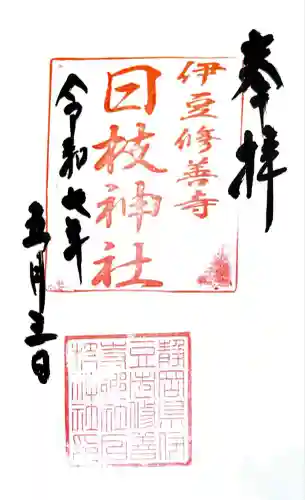 奉拝
伊豆修善寺
日枝神社
令和七年
五月三日
静岡県伊
豆市修善
寺鎮社日
枝神社印